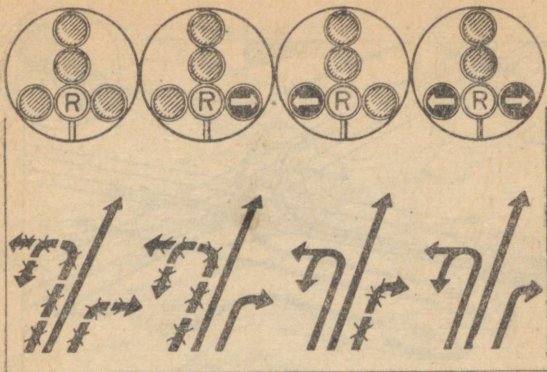 R R R R